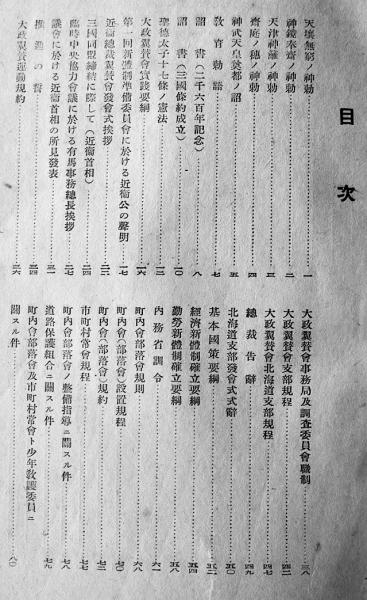 目次
天壤無窮ノ神勅………一
神鏡奉齋ノ神勅………二
天津神籬ノ神勅………三
齋庭ノ穗ノ神勅………四
神武天皇奠都ノ詔………五
教育勅語………七
詔書(二千六百年記念)………八
詔書(三國條約成立)………一〇
聖德太子十七條ノ憲法………一二
大政翼賛會實踐要綱………一六
第一回新體制準備委員會に於ける近衞公の聲明………一七
近衞總裁翼賛會發會式挨拶………二二
三國同盟締結に際して(近衞首相)………二四
臨時中央協力會議に於ける有馬事務總長挨拶………二七
議會に於ける近衞首相の所見發表………三一
推進の誓………三四
大政翼賛運動規約………三六
大政翼賛會事務局及調査委員會職制………三八
大政翼賛會支部規程………四二
大政翼賛會北海道支部規程………四七
總裁告辭………四九
北海道支部發會式式辭………五〇
基本國策要綱………五二
經濟新體制確立要綱………五四
勤勞新體制確立要綱………五八
內務省訓令………六一
町內會部落會規則………六八
町內會(部落會)設置規程………七〇
町內會(部落會)規約………七三
市町村常會規程………七七
町內會部落會ノ整備指導ニ關スル件………七八
道路保護組合ニ關スル件………七九
町內會部落會及市町村常會ト少年教護委員ニ
關スル件………八〇